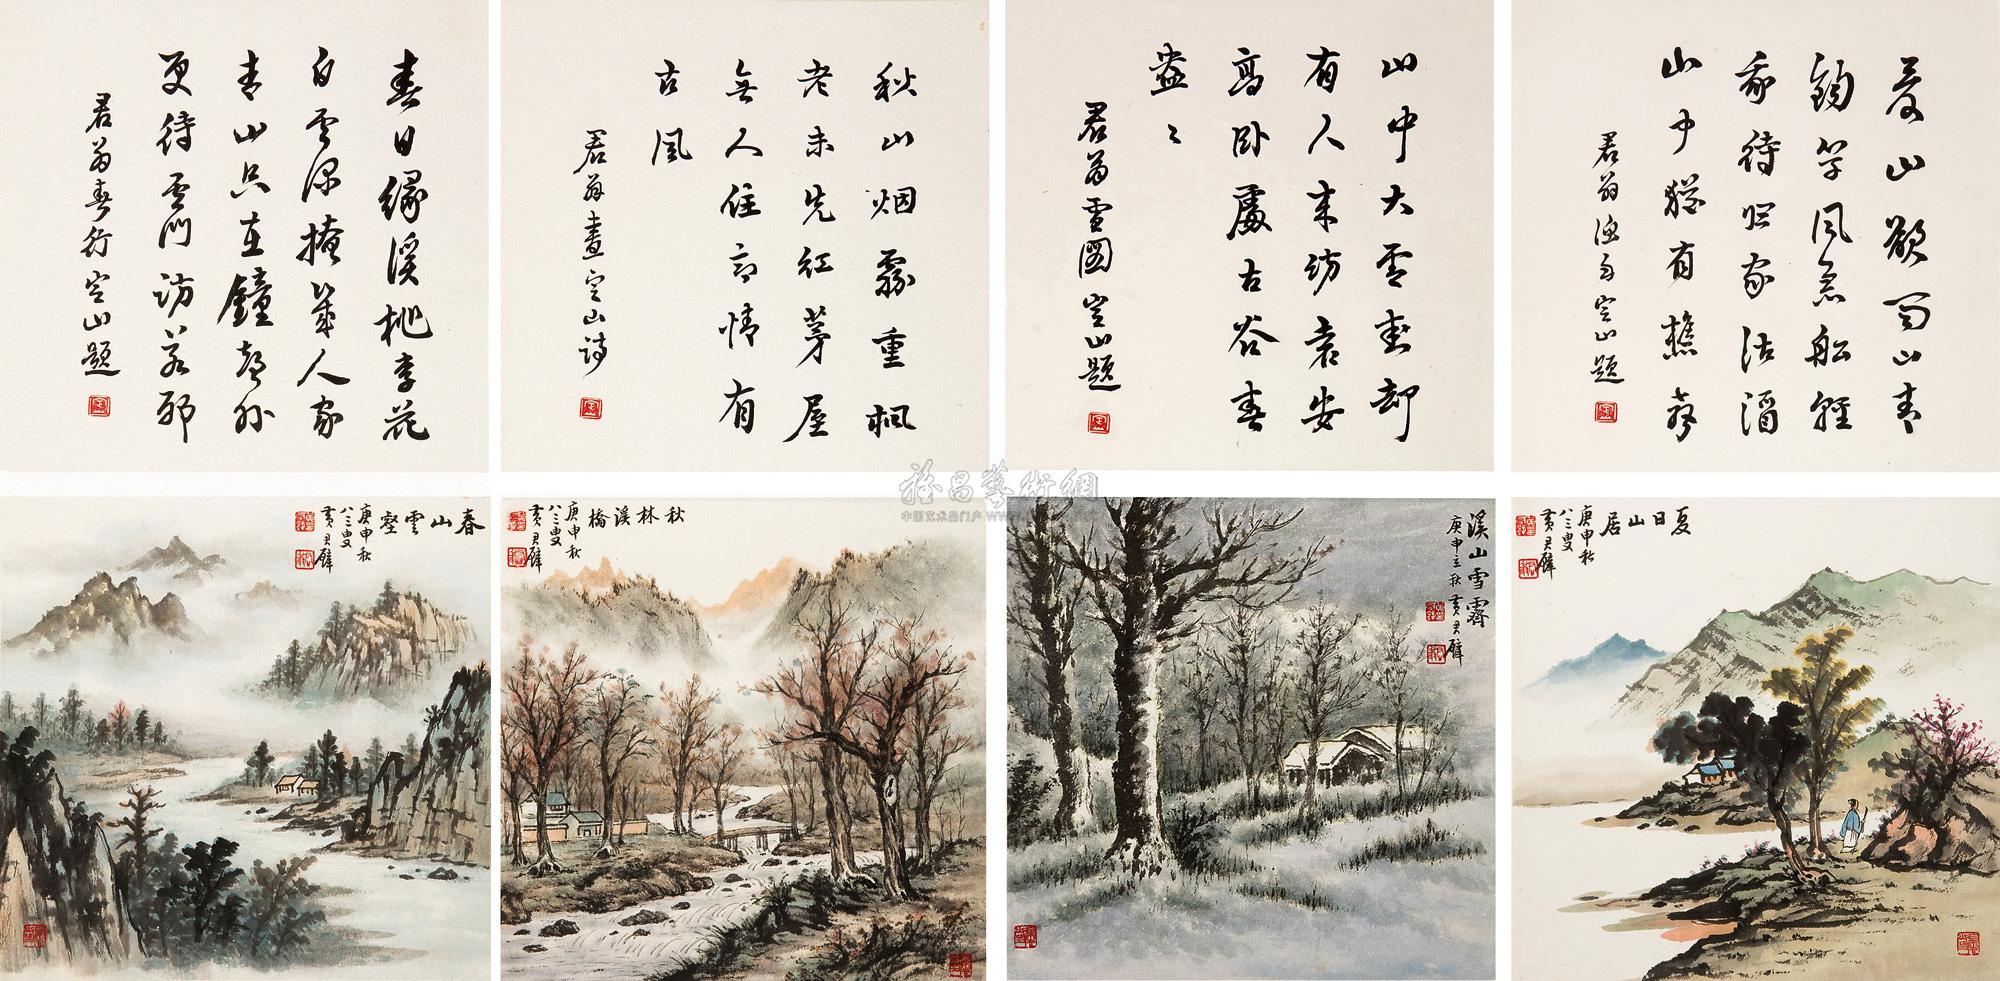 春日緣溪桃李花
白雲深掩幾人家
青山只在鐘聲外
更待雲門訪若耶
君翁春行 定山題
秋山烟靄重楓
老未先紅茅屋
無人住高情有
古風
君翁畫 定山詩
山中大雪春却
有人來訪袁安
高卧處古谷春
盎ミ
君翁雪圖 定山題
夏山欲
山青
釣竿風急船輕
歌待歸家沽酒
山中猶有樵
君翁漁 定山題
春山雲壑
庚申秋
八三叟
黃君璧
秋林溪橋
庚申秋
八三叟
黃君璧
溪山雪霽
庚申立秋 黃君璧
夏日山居
庚申秋
八三叟
黃君璧
中国艺术品门户